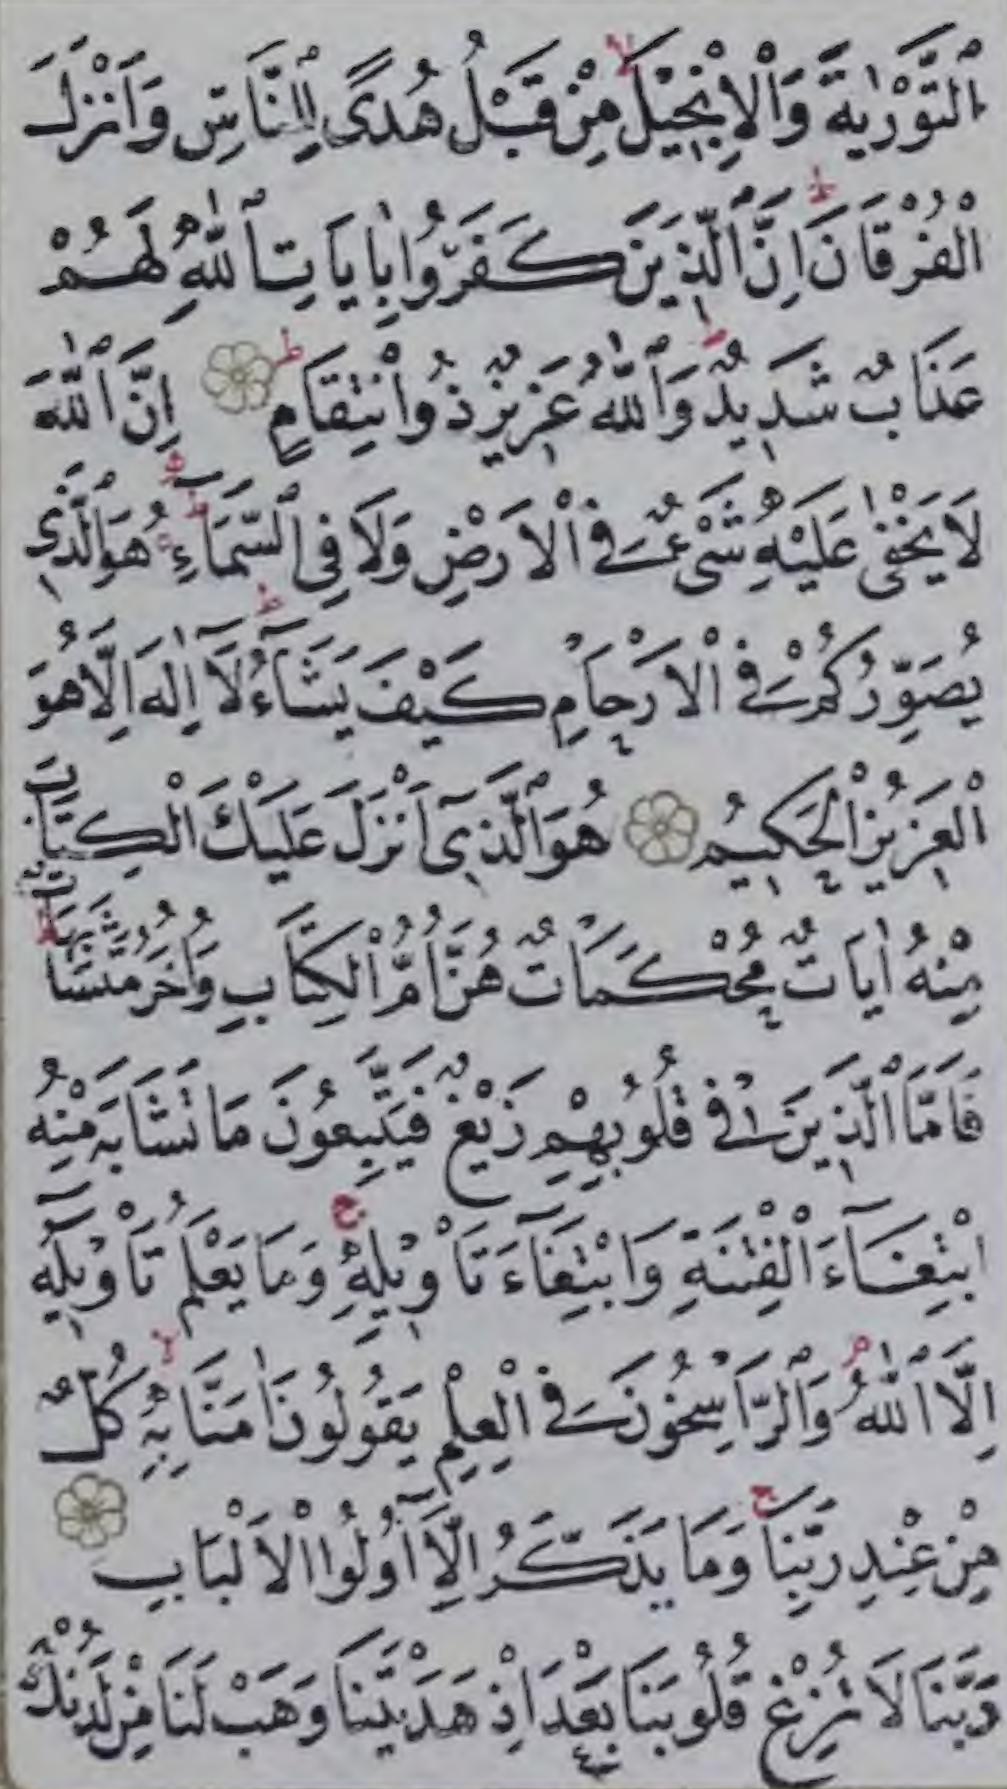 اَلتَّوْرٰيةَ وَالْاِنْجِيْلَ مِنْ قَبْلُ هُدًى لِلنَّاسِ وَاَنْزَلَ
الْفُرْقَانَ اِنَّ الَّذِيْنَ كَفَرُوا بِاٰيَاتِ اللّٰهِ لَهُمْ
عَذَابٌ شَدِيْدٌ وَاللّٰهُ عَزِيْزٌ ذُو انْتِقَامٍ اِنَّ اللّٰهَ
لَا يَخْفٰى عَلَيْهِ شَىْءٌ فِى الْاَرْضِ وَلَا فِى السَّمَاءِ هُوَ الَّذِى
يُصَوِّرُكُمْ فِى الْاَرْحَامِ كَيْفَ يَشَآءُ لَآ اِلٰهَ اِلَّا هُوَ
الْعَزِيْزُ الْحَكِيْمُ هُوَ الَّذِىٓ اَنْزَلَ عَلَيْكَ الْكِتَابَ
مِنْهُ اٰيَاتٌ مُحْكَمَاتٌ هُنَّ اُمُّ الْكِتَابِ وَاُخَرُ مُتَشَابِهَاتٌ
فَاَمَّا الَّذِيْنَ فِى قُلُوبِهِمْ زَيْغٌ فَيَتَّبِعُونَ مَا تَشَابَهَ مِنْهُ
ابْتِغَآءَ الْفِتْنَةِ وَابْتِغَآءَ تَاْوِيْلِهِ وَمَا يَعْلَمُ تَاْوِيْلَهُٓ
اِلَّا اللّٰهُ وَالرَّاسِخُونَ فِى الْعِلْمِ يَقُولُونَ اٰمَنَّا بِهِ كُلٌّ
مِنْ عِنْدِ رَبِّنَا وَمَا يَذَّكَّرُ اِلَّآ اُولُوا الْاَلْبَابِ
رَبَّنَا لَا تُزِغْ قُلُوبَنَا بَعْدَ اِذْ هَدَيْتَنَا وَهَبْ لَنَا مِنْ لَدُنْكَ